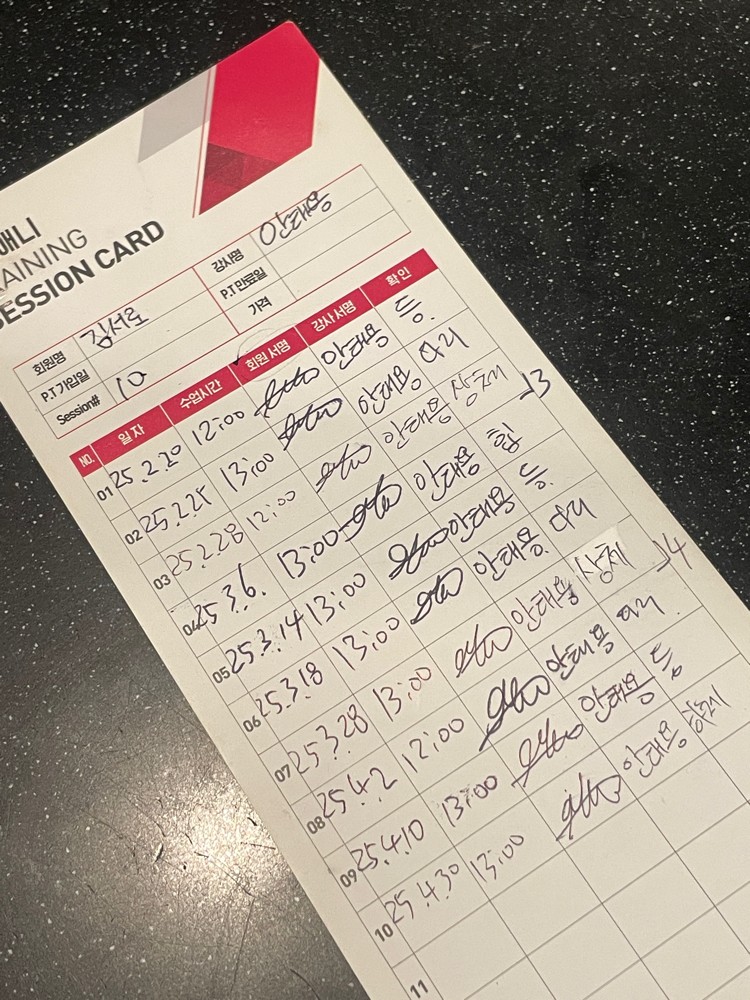 애니
TRAINING
SESSION CARD
회원명 김서로 강사명 안태용
P.T 가입일 P.T 만료일
Session# 10 가격
NO. 일 자 수업시간 회원 서명 강사 서명 확 인
01 25.2.20 12:00 안태용 등.
02 25.2.25 13:00 안태용 다리
03 25.2.28 12:00 안태용 상체 -13
04 25 3.6. 13:00 안태용 힙
05 25.3.14 13:00 안태용 등.
06 25.3.18 13:00 안태용. 다리
07 25 3.28 13:00 안태용 상체 -14
08 25.4.2 12:00 안태용 다리.
09 25.4.10 13:00 안태용 등
10 25.4.30 13:00 안태용 하체
11